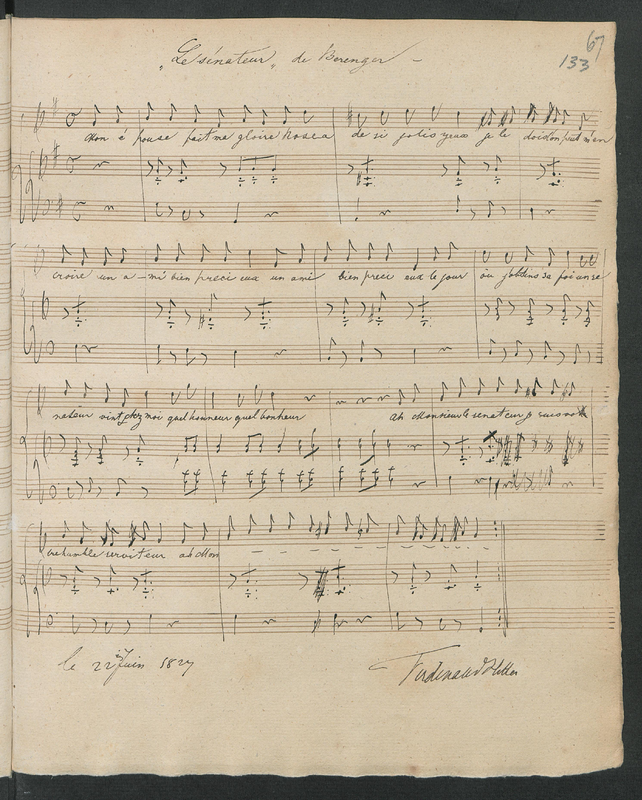 67
133
„Le sénateur„ de Berenger –
Mon é pouse fait ma gloire Rosea de si jolis yeux je le doit l'on peut m'en
croire un a-mi bien preci eux un ami bien preci eux le jour où j'obtins sa foi un se
nateur vint chez moi quel honneur quel bonheur ah Monsieur le senateur je suis votre
tre humble serviteur ah Mon
le 22 Juin 1827
Ferdinand Hiller